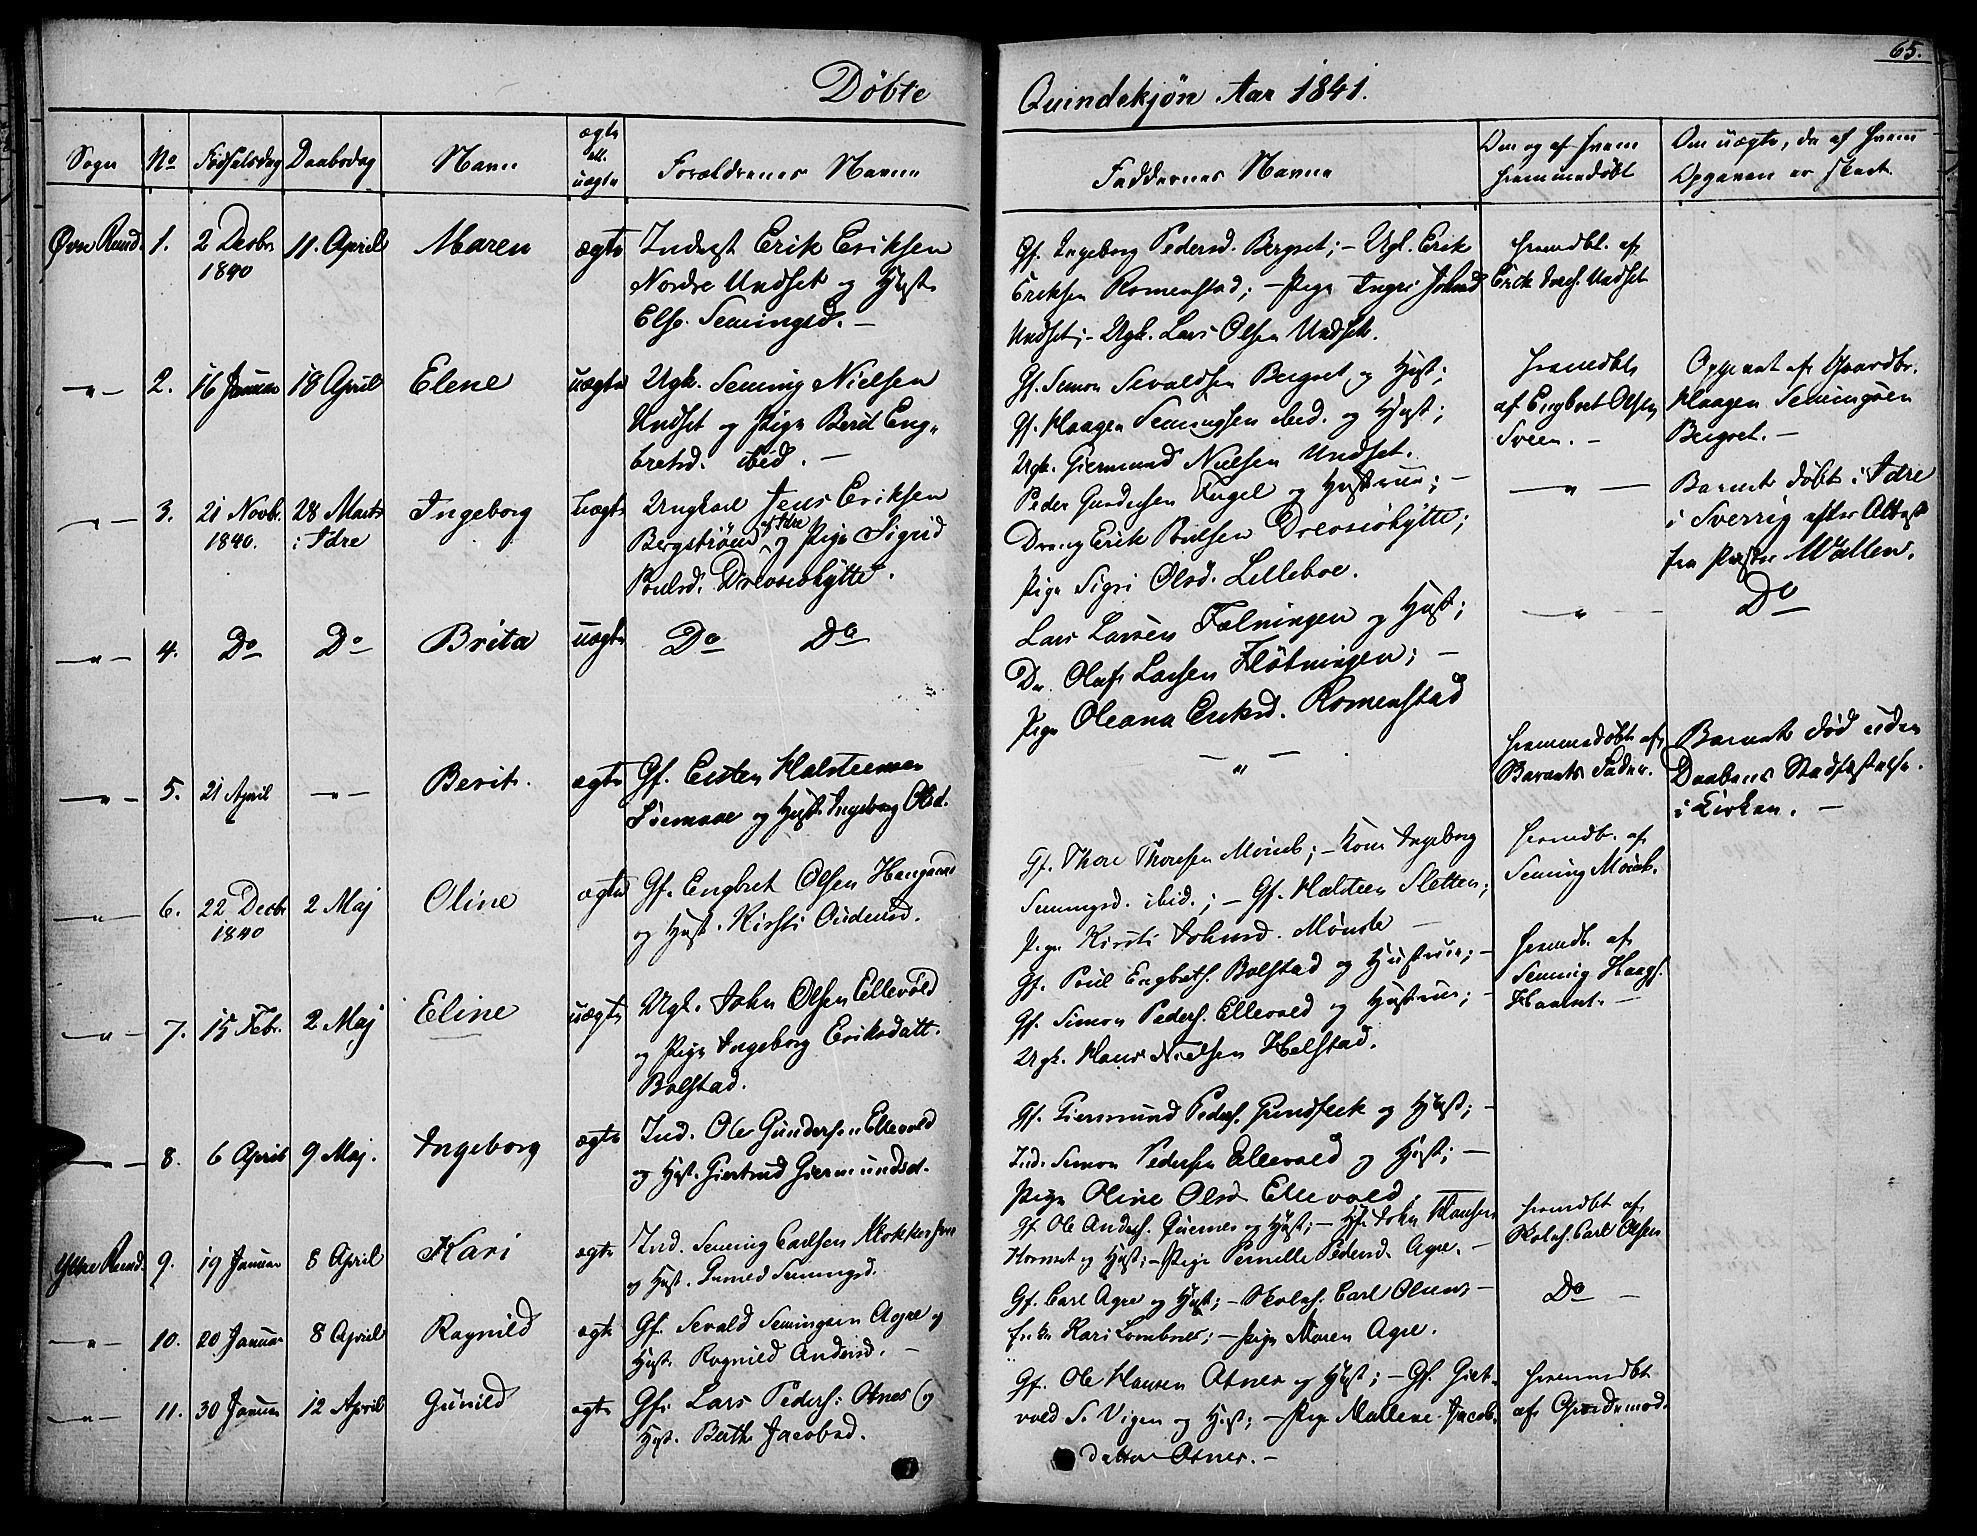 65.
Døbte Qvindekjøn Aar 1841.
Sogn No Fødselsdag Daabsdag Navn ægte ell. uægte Forældrenes Navne Faddernes Navne Om og af hvem hjemmedøbt Om uægte, da af hvem Opgaven er skeet.
Øvre Rend. 1. 2 Decbr 1840 11. April Maren ægte
Indrest Erik Eriksen
Nordre Undset og Hust.
Else Semingsd. —
Gf. Ingeborg Pedersd. Bergset; — Ugk. Erik
Eriksen Romenstad; — Pige Ingri Johnsd
Undset; — Ugk. Lars Olsen Undset.
hjemdbt. af
Erik Undset
— " — 2. 16 Januar 18 April Elene uægte
Ugk. Seming Nielsen
Undset og Pige Berit Eng-
bretsd. ibid. —
Gf. Simon Sevaldsen Bergset og Hust;
Gf. Haagen Semingsen ibid. og Hust;
Ugk. Giermund Nielsen Undset.
hjemdbt
af Engbret Olsen
Sveen. —
Opgivet af Gaardbr.
Haagen Semingsen
Bergset. —
— " — 3. 21 Novbr. 1840. 28 Marts i Idre Ingeborg uægte
Ungkarl Jens Eriksen
Bergstrøm af Idre og Pige Sigrid
Poulsd. Drevsiøhytte.
Peder Gundersen Engel og Hustrue; —
Dreng Erik Poulsen Drevsiøhytte;
Pige Sigri Olsd. Lilleboe.
— " —
Barnet døbt i Idre
i Sverrig efter Attest
fra Pastor Wallen.
— " — 4. Do Do Brita uægte Do Do
Lars Larsen Fælningen og Hust;
Dr. Oluf Larsen Fløtningen; —
Pige Oleana Eriksd. Romenstad
— " —
Do
— " — 5. 21 April — " — Berit. ægte
Gf. Esten Halsteensen
og Hust. Ingeborg Olsd.
— " —
hjemmedøbt af
Barnets Fader.
Barnet død uden
Daabens Stadfæstelse
i Kirken. —
— " — 6. 22 Decbr 1840 2 Maj Oline ægte
Gf. Engbret Olsen
og Hust. Kirsti Oudensd.
Gf. Thore Thoresen; — Kone Ingeborg
Semingsd. ibid.; — Gf. Halsteen Sletten;
Pige Kirsti Johnsd.
hjemdb. af
Seming
— " — 7. 15 Febr. 2 Maj Eline uægte
Ugk. John Olsen Ellevold
og Pige Ingeborg Eriksdatt.
Bolstad.
Gf. Poul Engbrets. Bolstad og Hustrue; —
Gf. Simon Peders. Ellevold og Hustrue; —
Ugk. Hans Nielsen Helstad.
hjemdb. af
Seming Haags.
— " — 8. 6 April 9 Maj. Ingeborg ægte
Ind. Ole Gundersen Ellevold
og Hust. Giertrud Giermundsd.
Gf. Giermund Peders. Gundseek og Hust; —
Ind. Simon Pedersen Ellevold og Hust; —
Pige Oline Olsd Ellevold.
Yttre Rend. 9. 19 Januar 8 April Kari ægte
Ind. Seming Carlsen
og Hust. Semingsd.
Gf. Ole Anders. Qvernes og Hust; — Gf. John Hansen
Hornset og Hust; — Pige Pernille Pedersd. Agre. —
hjemdbt af
Skoleh. Carl Olsen
— " — 10. 20 Januar 8 April Ragnild ægte
Gf. Sevald Semingsen Agre og
Hust. Ragnild Andersd. —
Gf. Carl Agre og Hust; — Skoleh. Carl Olsen; —
Enke Kari Lombnes; — Pige Maren Agre.
Do —
— " — 11. 30 Januar 12 April Gunild ægte
Gf. Lars Peders. Otnes og
Hust. Berthe Jacobsd.
Gf. Ole Hansen Otnes og Hust; — Gf. Giet-
vold S. Vigen og Hust; — Pige Mallene Jacobs-
datter Otnes. —
hjemmedbt
af Giordemod.